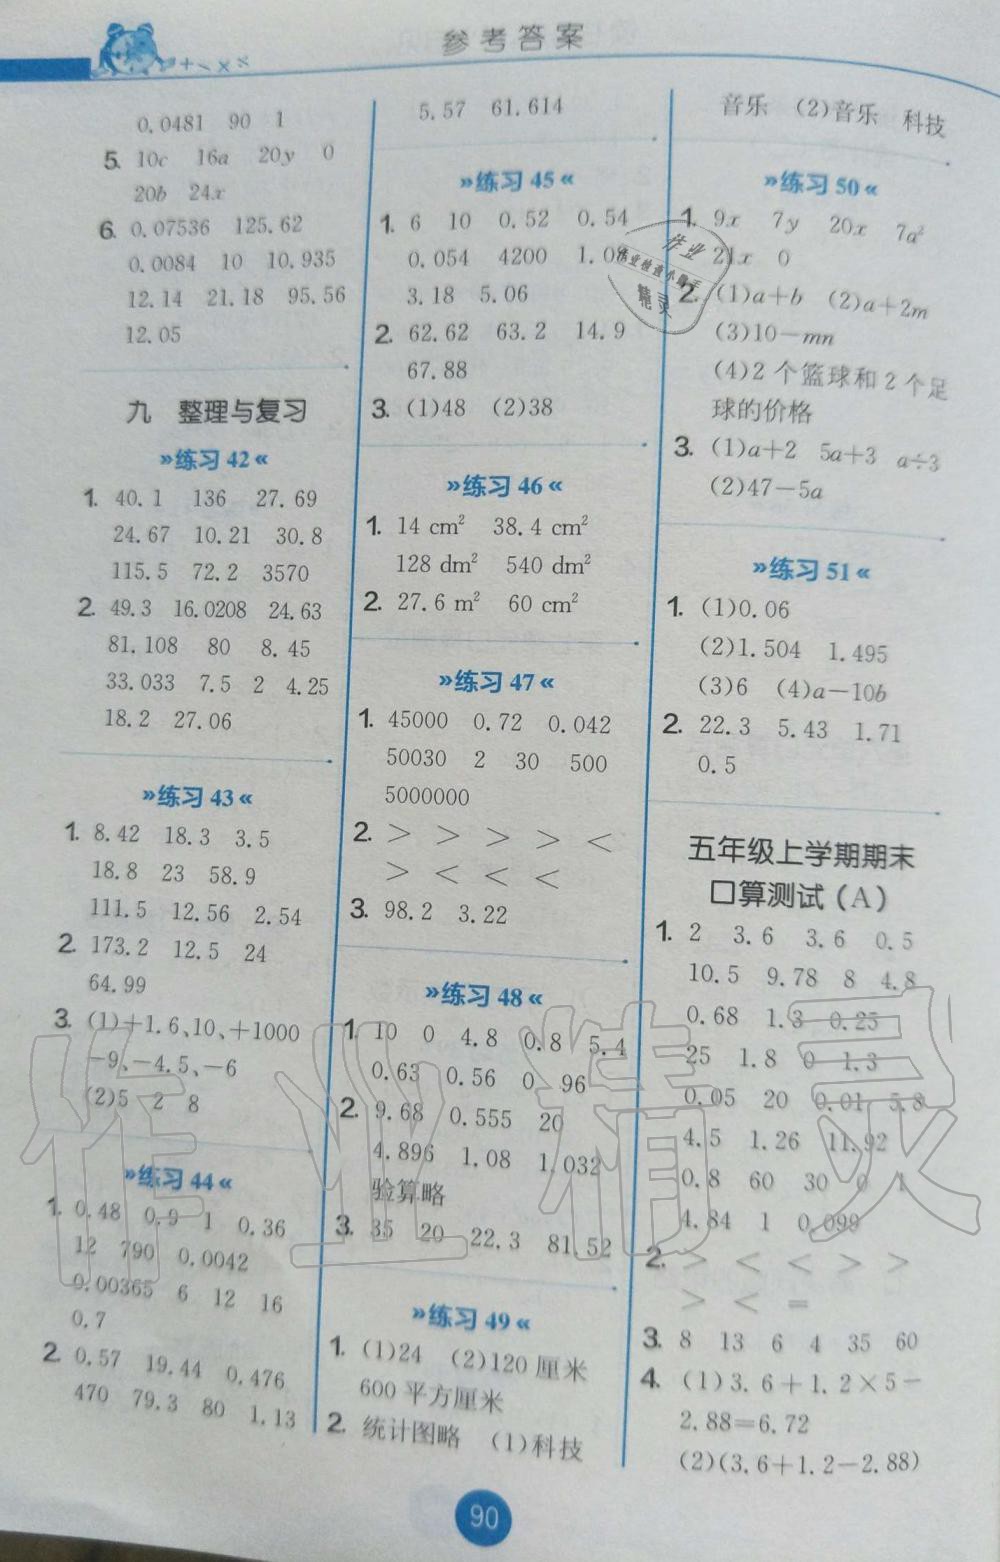 参考答案
0.0481 90 1
5. 10c 16a 20y 0
20b 24x
6. 0.07536 125.62
0.0084 10 10.935
12.14 21.18 95.56
12.05
九 整理与复习
»练习 42«
1. 40.1 136 27.69
24.67 10.21 30.8
115.5 72.2 3570
2. 49.3 16.0208 24.63
81.108 80 8.45
33.033 7.5 2 4.25
18.2 27.06
»练习 43«
1. 8.42 18.3 3.5
18.8 23 58.9
111.5 12.56 2.54
2. 173.2 12.5 24
64.99
3. (1)+1.6、10、+1000
-9、-4.5、-6
(2)5 2 8
»练习 44«
1. 0.48 0.9 1 0.36
12 790 0.0042
0.00365 6 12 16
0.7
2. 0.57 19.44 0.476
470 79.3 80 1.13
5.57 61.614
»练习 45«
1. 6 10 0.52 0.54
0.054 4200
3.18 5.06
2. 62.62 63.2 14.9
67.88
3. (1)48 (2)38
»练习 46«
1. 14 cm² 38.4 cm²
128 dm² 540 dm²
2. 27.6 m² 60 cm²
»练习 47«
1. 45000 0.72 0.042
50030 2 30 500
5000000
2. > > > > <
> < < <
3. 98.2 3.22
»练习 48«
1. 10 0 4.8 0.8 5.4
0.63 0.56 0 96
2. 9.68 0.555 20
4.896 1.08 1.032
验算略
3. 35 20 22.3 81.52
»练习 49«
1. (1)24 (2)120 厘米
600 平方厘米
2. 统计图略 (1)科技
音乐 (2)音乐 科技
»练习 50«
1. 9x 7y 20x 7a²
21x 0
2. (1)a+b (2)a+2m
(3)10-mn
(4)2 个篮球和 2 个足
球的价格
3. (1)a+2 5a+3 a÷3
(2)47-5a
»练习 51«
1. (1)0.06
(2)1.504 1.495
(3)6 (4)a-10b
2. 22.3 5.43 1.71
0.5
五年级上学期期末
口算测试(A)
1. 2 3.6 3.6 0.5
10.5 9.78 8 4.8
0.68 1.3 0.25
25 1.8 0 1.3
0.05 20 0.01 5.8
4.5 1.26 11.92
0.8 60 30 0 1
4.84 1 0.099
2. > < < > >
> < =
3. 8 13 6 4 35 60
4. (1)3.6+1.2×5-
2.88=6.72
(2)(3.6+1.2-2.88)
90
作业
作业检查小助手
精灵
作业精灵